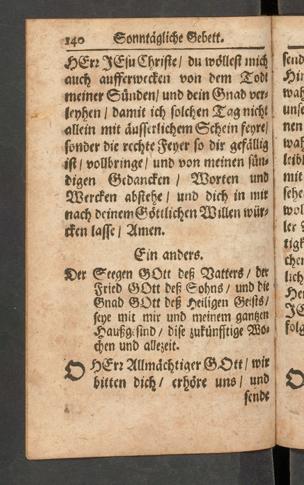 140 Sonntägliche Gebett.
HErr JEsu Christe / du wöllest mich
auch aufferwecken von dem Todt
meiner Sünden / und dein Gnad ver-
leyhen / damit ich solchen Tag nicht
allein mit äusserlichem Schein feyre /
sonder die rechte Feyer so dir gefällig
ist / vollbringe / und von meinen sün-
digen Gedancken / Worten und
Wercken abstehe / und dich in mir
nach deinem Göttlichen Willen wür-
cken lasse / Amen.
Ein anders.
Der Seegen GOtt deß Vatters / der
Fried GOtt deß Sohns / und die
Gnad GOtt deß Heiligen Geists /
seye mit mir und meinem gantzen
Haußgesind / dise zukünfftige Wo-
chen und allezeit.
O HErr Allmächtiger GOtt / wir
bitten dich / erhöre uns / und
sende